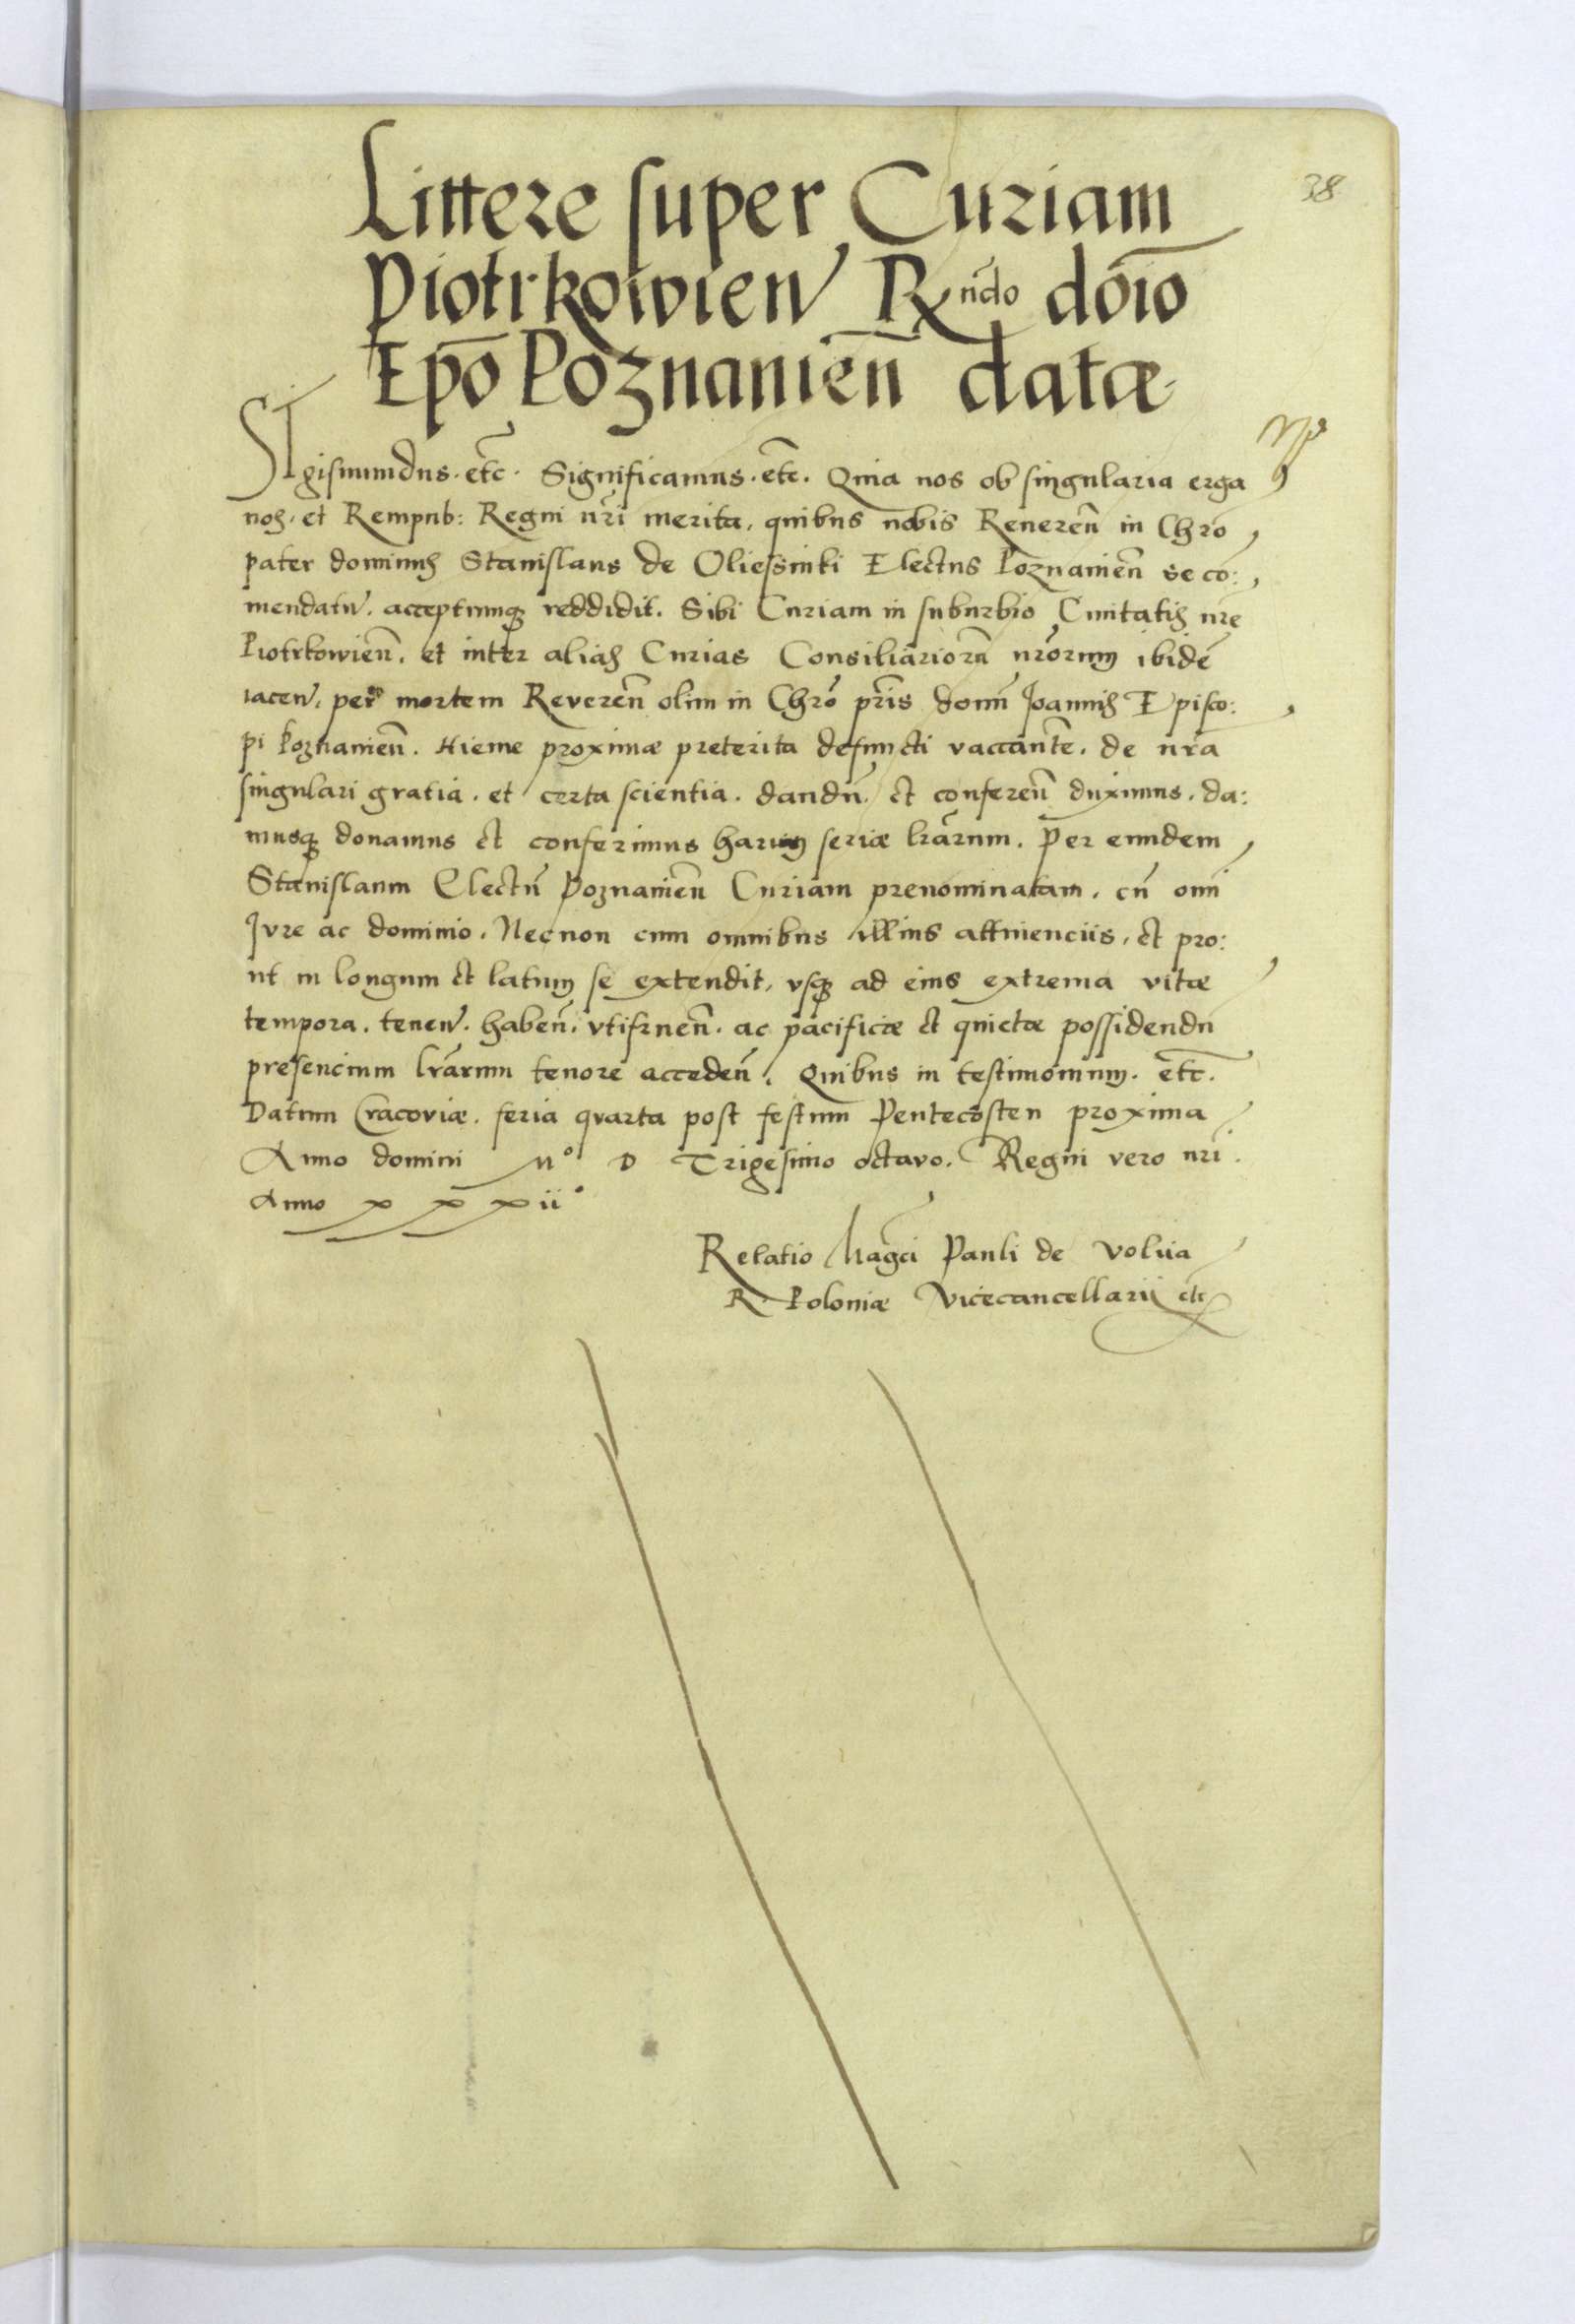 38
Littere super Curiam
Piotrkowien R[n̄do] dōīo
Ep̄o Poznanien̄ datæ
SIgismundus . etc̄ . Significamus . etc̄ . Quia nos ob singularia erga
nos . et Rempub: Regni nr̄i merita , quibus nobis Reueren̄ in Chr̄o
pater dominus Stanislaus de Oliessniki Electus Poznanien̄ se co:
mendatu . acceptumq̨ reddidit . Sibi Curiam in suburbio Ciuitatis nr̄e
Piotrkowien̄ . et inter alias Curias Consiliariorū nr̄orum ibidē
iacen . per mortem Reveren̄ olim in Chr̄o pr̄is domī Joannis Episco:
pi Poznanien̄ . Hieme proximæ preterita defuncti vaccante . de nr̄a
singulari gratia . et certa scientia . dandū . et conferen̄ duximus . da:
musq̨ donamus et conferimus harum seriæ lr̄arum . Per eundem
Stanislaum Electū Poznanien̄ Curiam prenominatam . cū omī
Jvre ac dominio . Necnon cum omnibus illius attinenciis , et pro:
ut in longum et latum se extendit , vsq̨ ad eius extrema vitæ
tempora . tenen . haben̄ . vtifruen̄ . ac pacificæ et quietæ possidendū
presencium lr̄arum tenore acceden̄ . Quibus in testimonium . etc̄ .
Datum Cracoviæ . feria qvarta post festum Pentecosten proxima
Anno domini M° D Trigesimo octavo . Regni vero nr̄i .
Anno xxxii°
Relatio Maḡci Pauli de Volua
R . Poloniæ Vicecancellarii etc